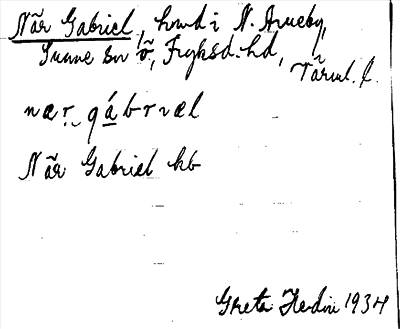 När Gabriel, hmd i N. Årneby,
Sunne sn ö, Fryksd. hd,
Värml. l.
nær gábriæl
När Gabriel hb
Greta Hedin 1934